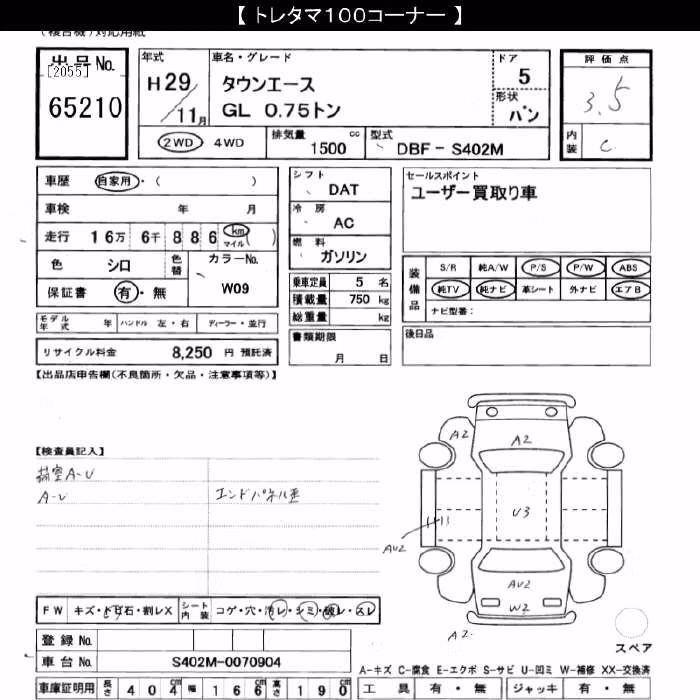 【 トレタマ100コーナー 】
(複合機)対応用紙
出品No.
[2055]
65210
年式
H29/11月
車名・グレード
タウンエース
GL 0.75トン
ドア
5
形状
バン
評価点
3.5
内装
C
2WD 4WD
排気量 1500 cc
型式 DBF-S402M
車歴 自家用・( )
車検 年 月
走行 16万 6千 886 km マイル ( )
色 シロ 色替 カラーNo. W09
保証書 有・無
シフト DAT
冷房 AC
燃料 ガソリン
乗車定員 5 名
積載量 750 kg
総重量 kg
書類期限
月 日
セールスポイント
ユーザー買取り車
装備品
S/R 純A/W P/S P/W ABS
純TV 純ナビ 革シート 外ナビ エアB
ナビ型番:
後日品
モデル年式 年 ハンドル 左・右 ディーラー・並行
リサイクル料金 8,250 円 預託済
【出品店申告欄(不良箇所・欠品・注意事項等)】
【検査員記入】
荷室A-U
A-U
エンドパネル歪
A2
A2
U3
AU2
AU2
W2
A2.
スペア
FW キズ・トビ石・割レX シート内装 コゲ・穴・汚レ・シミ・破レ・スレ
登録No.
車台No. S402M-0070904
A-キズ C-腐食 E-エクボ S-サビ U-凹ミ W-補修 XX-交換済
車庫証明用 長さ 404 cm 幅 166 cm 高さ 190 cm
工具 有・無 ジャッキ 有・無